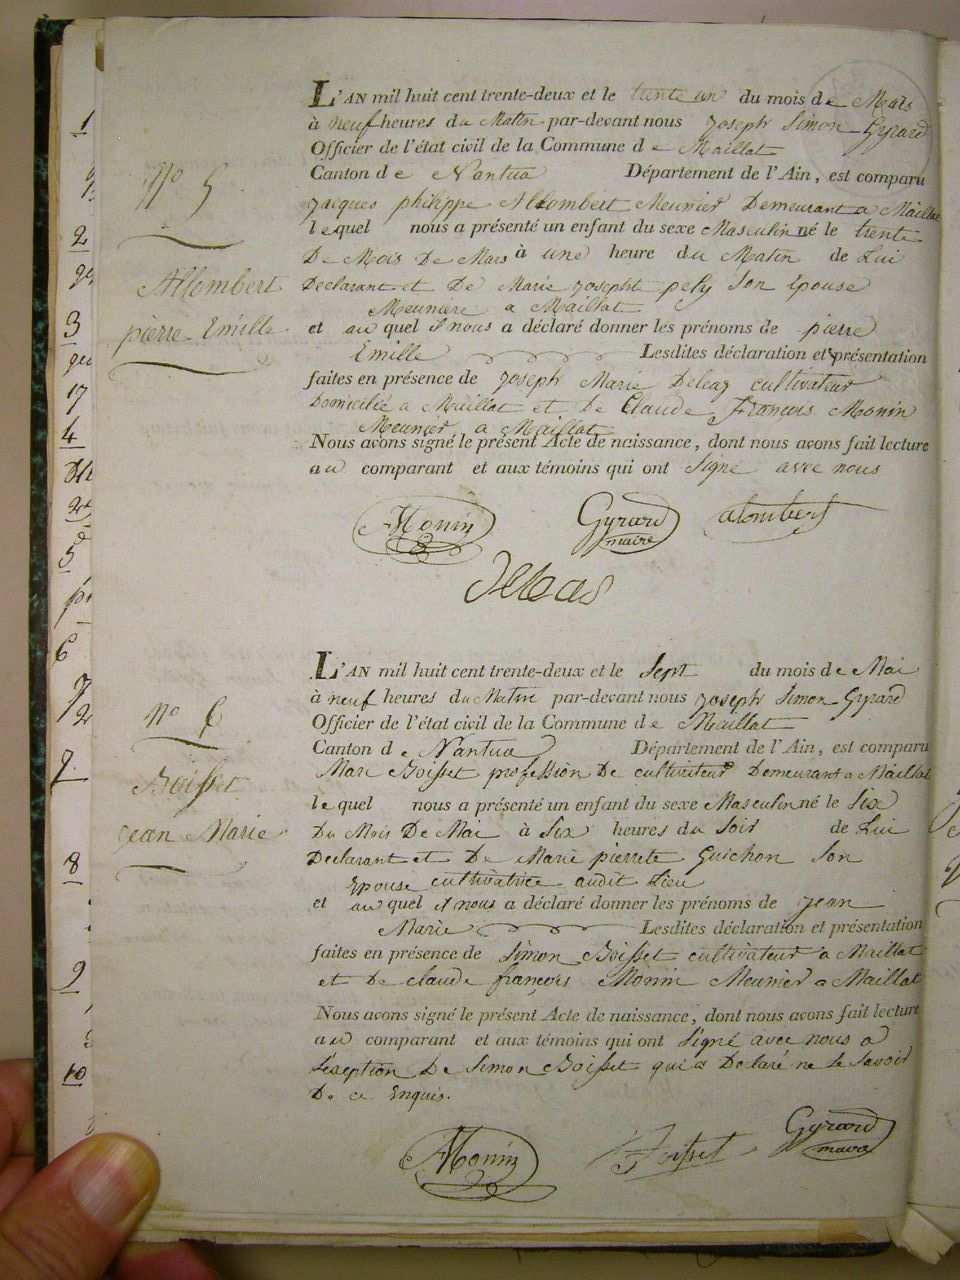 L'AN mil huit cent trente-deux et le trente un du mois de Mars
à neuf heures du Matin par-devant nous Joseph Simon Gyrard
Officier de l'état civil de la Commune de Maillat
N° 5
Canton de Nantua Département de l'Ain, est comparu
Jacques philippe Allombert Meunier Demeurant a Maillat
lequel nous a présenté un enfant du sexe Masculin né le trente
De Mois De Mars à une heure du Matin de Lui
Allombert
pierre Emille
Declarant et De Marie Josepht pely Son Epouse
Meunière a Maillat
et au quel il nous a déclaré donner les prénoms de pierre
Emille Lesdites déclaration et présentation
faites en présence de Joseph Marie Delcas cultivateur
Domicilié a Maillat et De Claude François Monin
Meunier a Maillat
Nous avons signé le présent Acte de naissance, dont nous avons fait lecture
au comparant et aux témoins qui ont Signé avec nous
Monin Gyrard maire alombert
Delcas
L'AN mil huit cent trente-deux et le Sept du mois de Mai
à neuf heures du Matin par-devant nous Joseph Simon Gyrard
Officier de l'état civil de la Commune de Maillat
N° 6
Canton de Nantua Département de l'Ain, est comparu
Marc Boisset profession De cultivateur Demeurant a Maillat
Boisset
Jean Marie
lequel nous a présenté un enfant du sexe Masculin né le Six
Du Mois De Mai à Six heures du Soir de Lui
Declarant et De Marie pierrete Guichon Son
Epouse cultivatrice audit Lieu
et au quel il nous a déclaré donner les prénoms de jean
Marie Lesdites déclaration et présentation
faites en présence de Simon Boisset cultivateur a Maillat
et De claude françois Monin Meunier a Maillat
Nous avons signé le présent Acte de naissance, dont nous avons fait lecture
au comparant et aux témoins qui ont Signé avec nous a
L'exseption De Simon Boisset qui a Declaré ne le Savoir
De ce Enquis.
Monin Boisset Gyrard maire
1
2
3
17
4
5
6
7
8
9
10